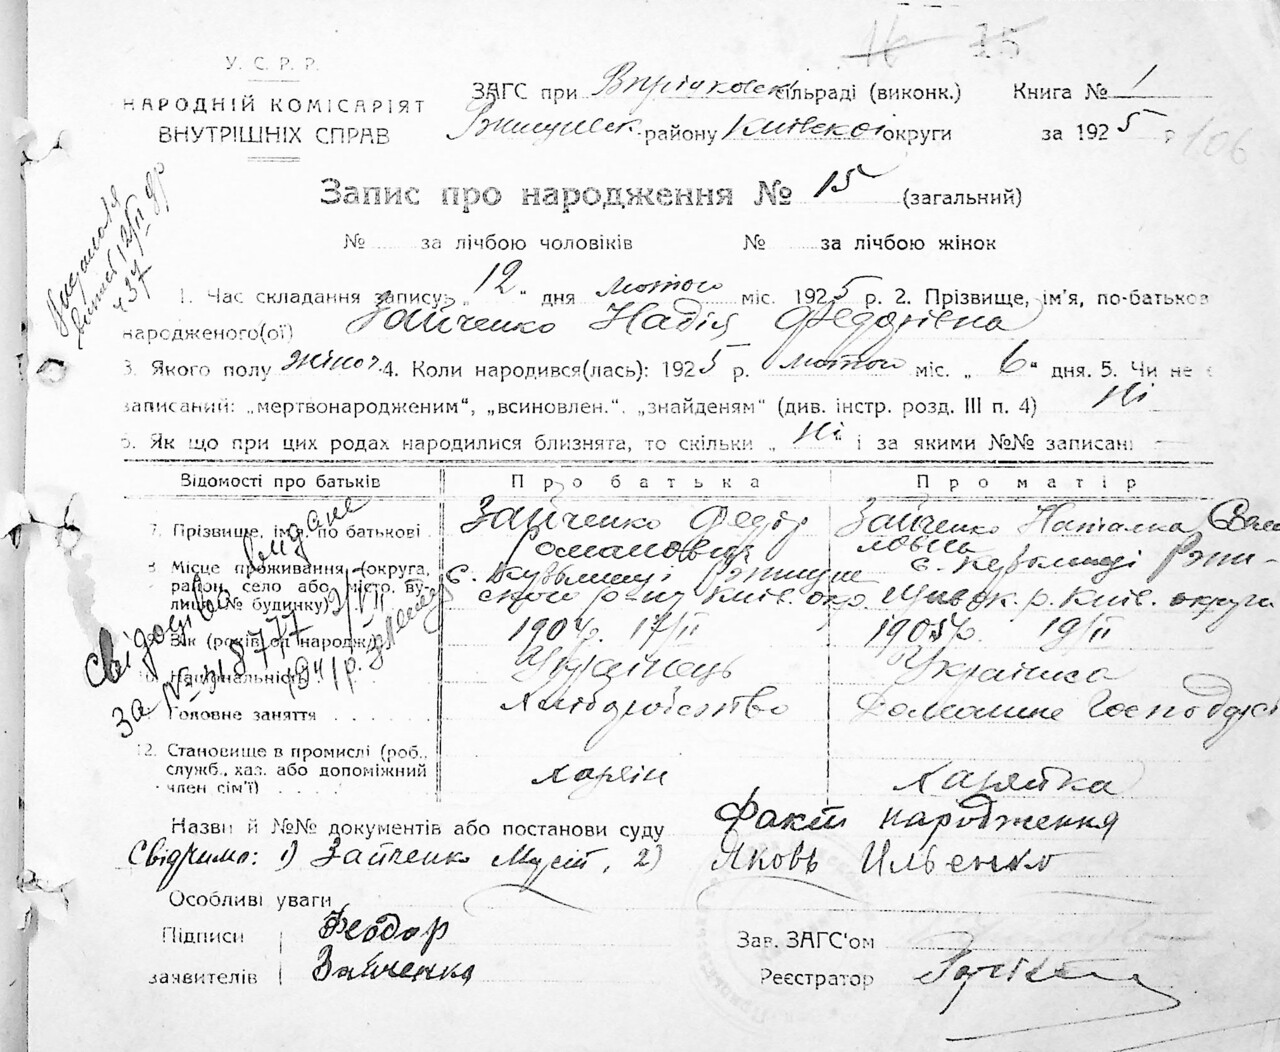 16 15
У. С. Р. Р.
НАРОДНІЙ КОМІСАРІЯТ
ВНУТРІШНІХ СПРАВ
ЗАГС при сільраді (виконк.) Книга № 1
району Київської округи за 1925 р
106
Запис про народження № 15 (загальний)
№ за лічбою чоловіків № за лічбою жінок
1. Час складання запису „12“ дня лютого міс. 1925 р. 2. Прізвище, ім'я, по-батькові
народженого(ої) Зайченко Надія Федорівна
3. Якого полу жіноч. 4. Коли народився(лась): 1925 р. лютого міс. „6“ дня. 5. Чи не є
записаний: „мертвонародженим“, „всиновлен.“, „знайденям“ (див. інстр. розд. III п. 4) Ні
6. Як що при цих родах народилися близнята, то скільки „ Ні і за якими №№ записані
Відомості про батьків Про батька Про матір
7. Прізвище, ім'я, по батькові Зайченко Федір Романович Зайченко Наталка
8 Місце проживання (округа, район, село або місто, вулиця, № будинку)
9. Вік (років од народж.) 1904р. 17/II 1905р. 19/II
10. Національність Українець Українка
Головне заняття Хліборобство Домашнє Господарст
12. Становище в промислі (роб., служб., хаз. або допоміжний член сім'ї) хазяін хазяйка
Свідоцтво видане
за №
1941р.
Назви й №№ документів або постанови суду Факт народження
1) Зайченко Мусій, 2) Яковь Ильенко
Особливі уваги
Підписи Феодор
заявителів Зайченко
Зав. ЗАГС'ом
Реєстратор